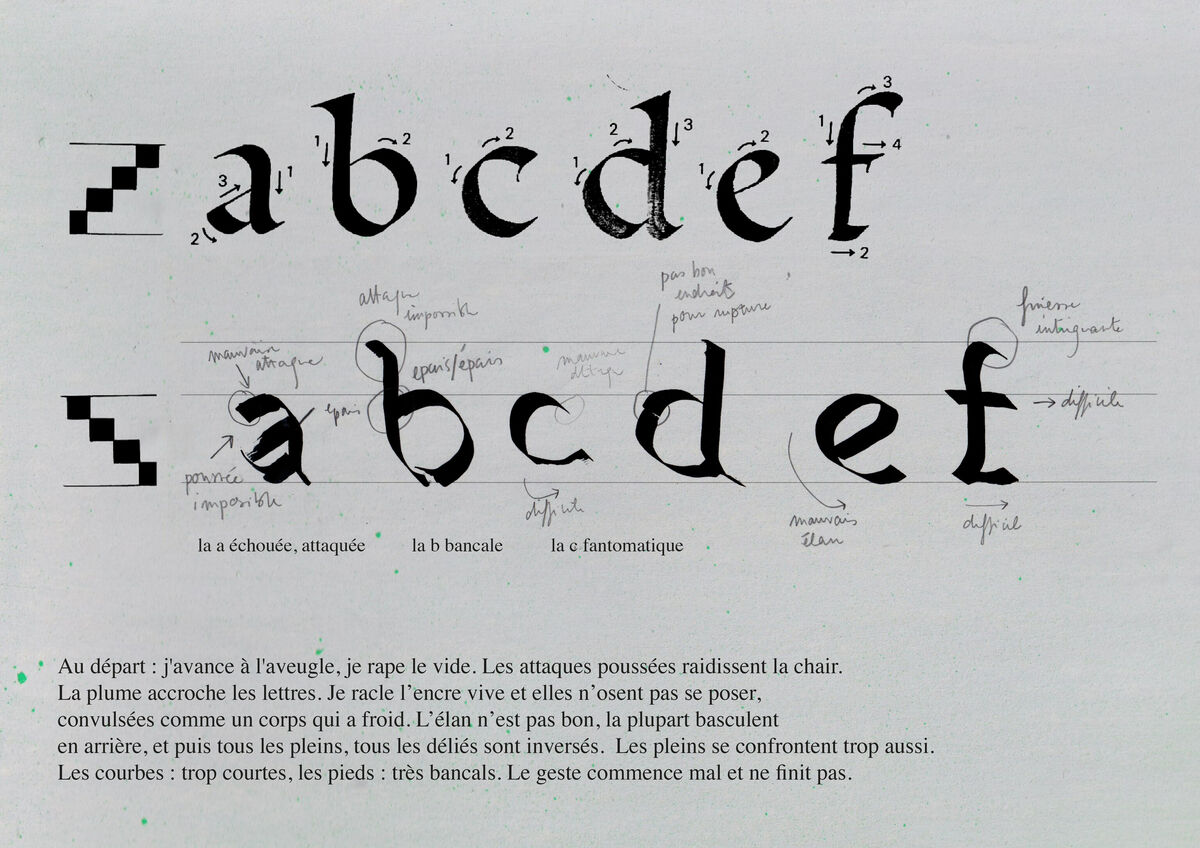 a b c d e f
3 1 2
1 2
1 2
1 2 3
1 2
1 3 4 2
attaque
impossible
pas bon
endroits
pour rupture
finesse
intriguante
mauvaise
attaque
epais/épais
mauvaise
attaque
epais
→ difficile
a b c d e f
poussée
impossible
difficile
mauvais
élan
difficil
la a échouée, attaquée la b bancale la c fantomatique
Au départ : j'avance à l'aveugle, je rape le vide. Les attaques poussées raidissent la chair.
La plume accroche les lettres. Je racle l’encre vive et elles n’osent pas se poser,
convulsées comme un corps qui a froid. L’élan n’est pas bon, la plupart basculent
en arrière, et puis tous les pleins, tous les déliés sont inversés.  Les pleins se confrontent trop aussi.
Les courbes : trop courtes, les pieds : très bancals. Le geste commence mal et ne finit pas.